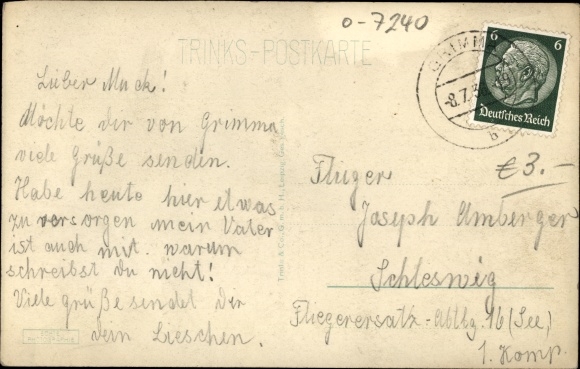 o-7240
TRINKS-POSTKARTE
GRIMMA
-8.7.3
b
6 6
Deutsches Reich
€ 3.-
Lieber Muck!
Möchte dir von Grimma
viele Grüße senden.
Habe heute hier etwas
zu versorgen mein Vater
ist auch mit. warum
schreibst du nicht!
Viele grüße sendet Dir
dein Lieschen.
Trinks & Co., G. m. b. H., Leipzig
Flieger
Joseph Amberger
Schleswig
Fliegerersatz-Abtlg. 16 (See)
1. Komp.